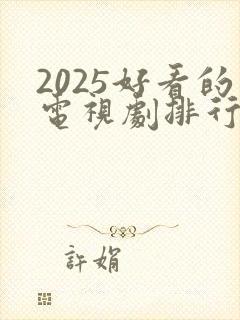 2025好看的
電視劇排行
許娟